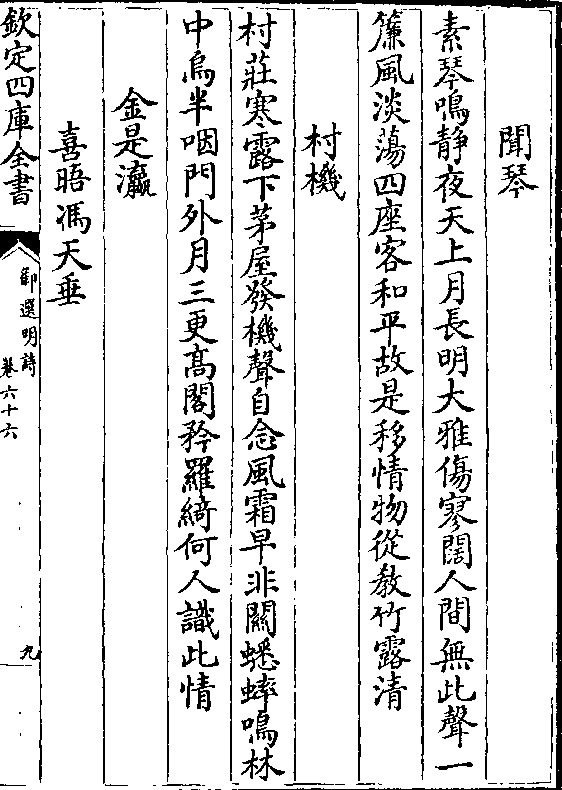 聞琴
素琴鳴静夜天上月長明大雅傷寥闊人間無此聲一
簾風淡蕩四座客和平故是移情物從教竹露清
村機
村莊寒露下茅屋發機聲自念風霜早非關蟋蟀鳴林
中烏半咽門外月三更髙閣矜羅綺何人識此情
金是瀛
喜晤馮天垂
欽定四庫全書
御選明詩
卷六十六
九